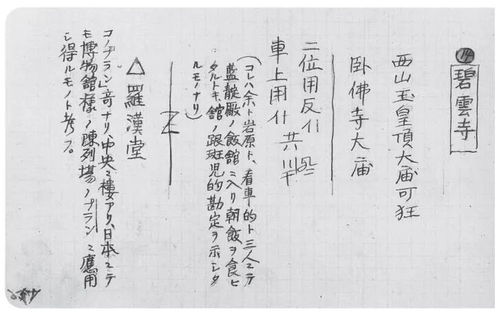 ⑭ 碧雲寺
西山玉皇頂大庙可狂
卧佛寺大庙
二位用反
車上用什共
(コレハ余ト岩原ト、看車的ト三人ニテ
藍靛厰ノ飯館ニ入リ朝飯ヲ食ヒ
タルトキ、館ノ跟班児的勘定ヲ示シタ
ルモノナリ)
△ 羅漢堂
コノプラン」奇ナリ、中央ニ樓アリ、日本ニテ
モ博物館様ノ陳列場ノプランニ應用
シ得ルモノト考フ。